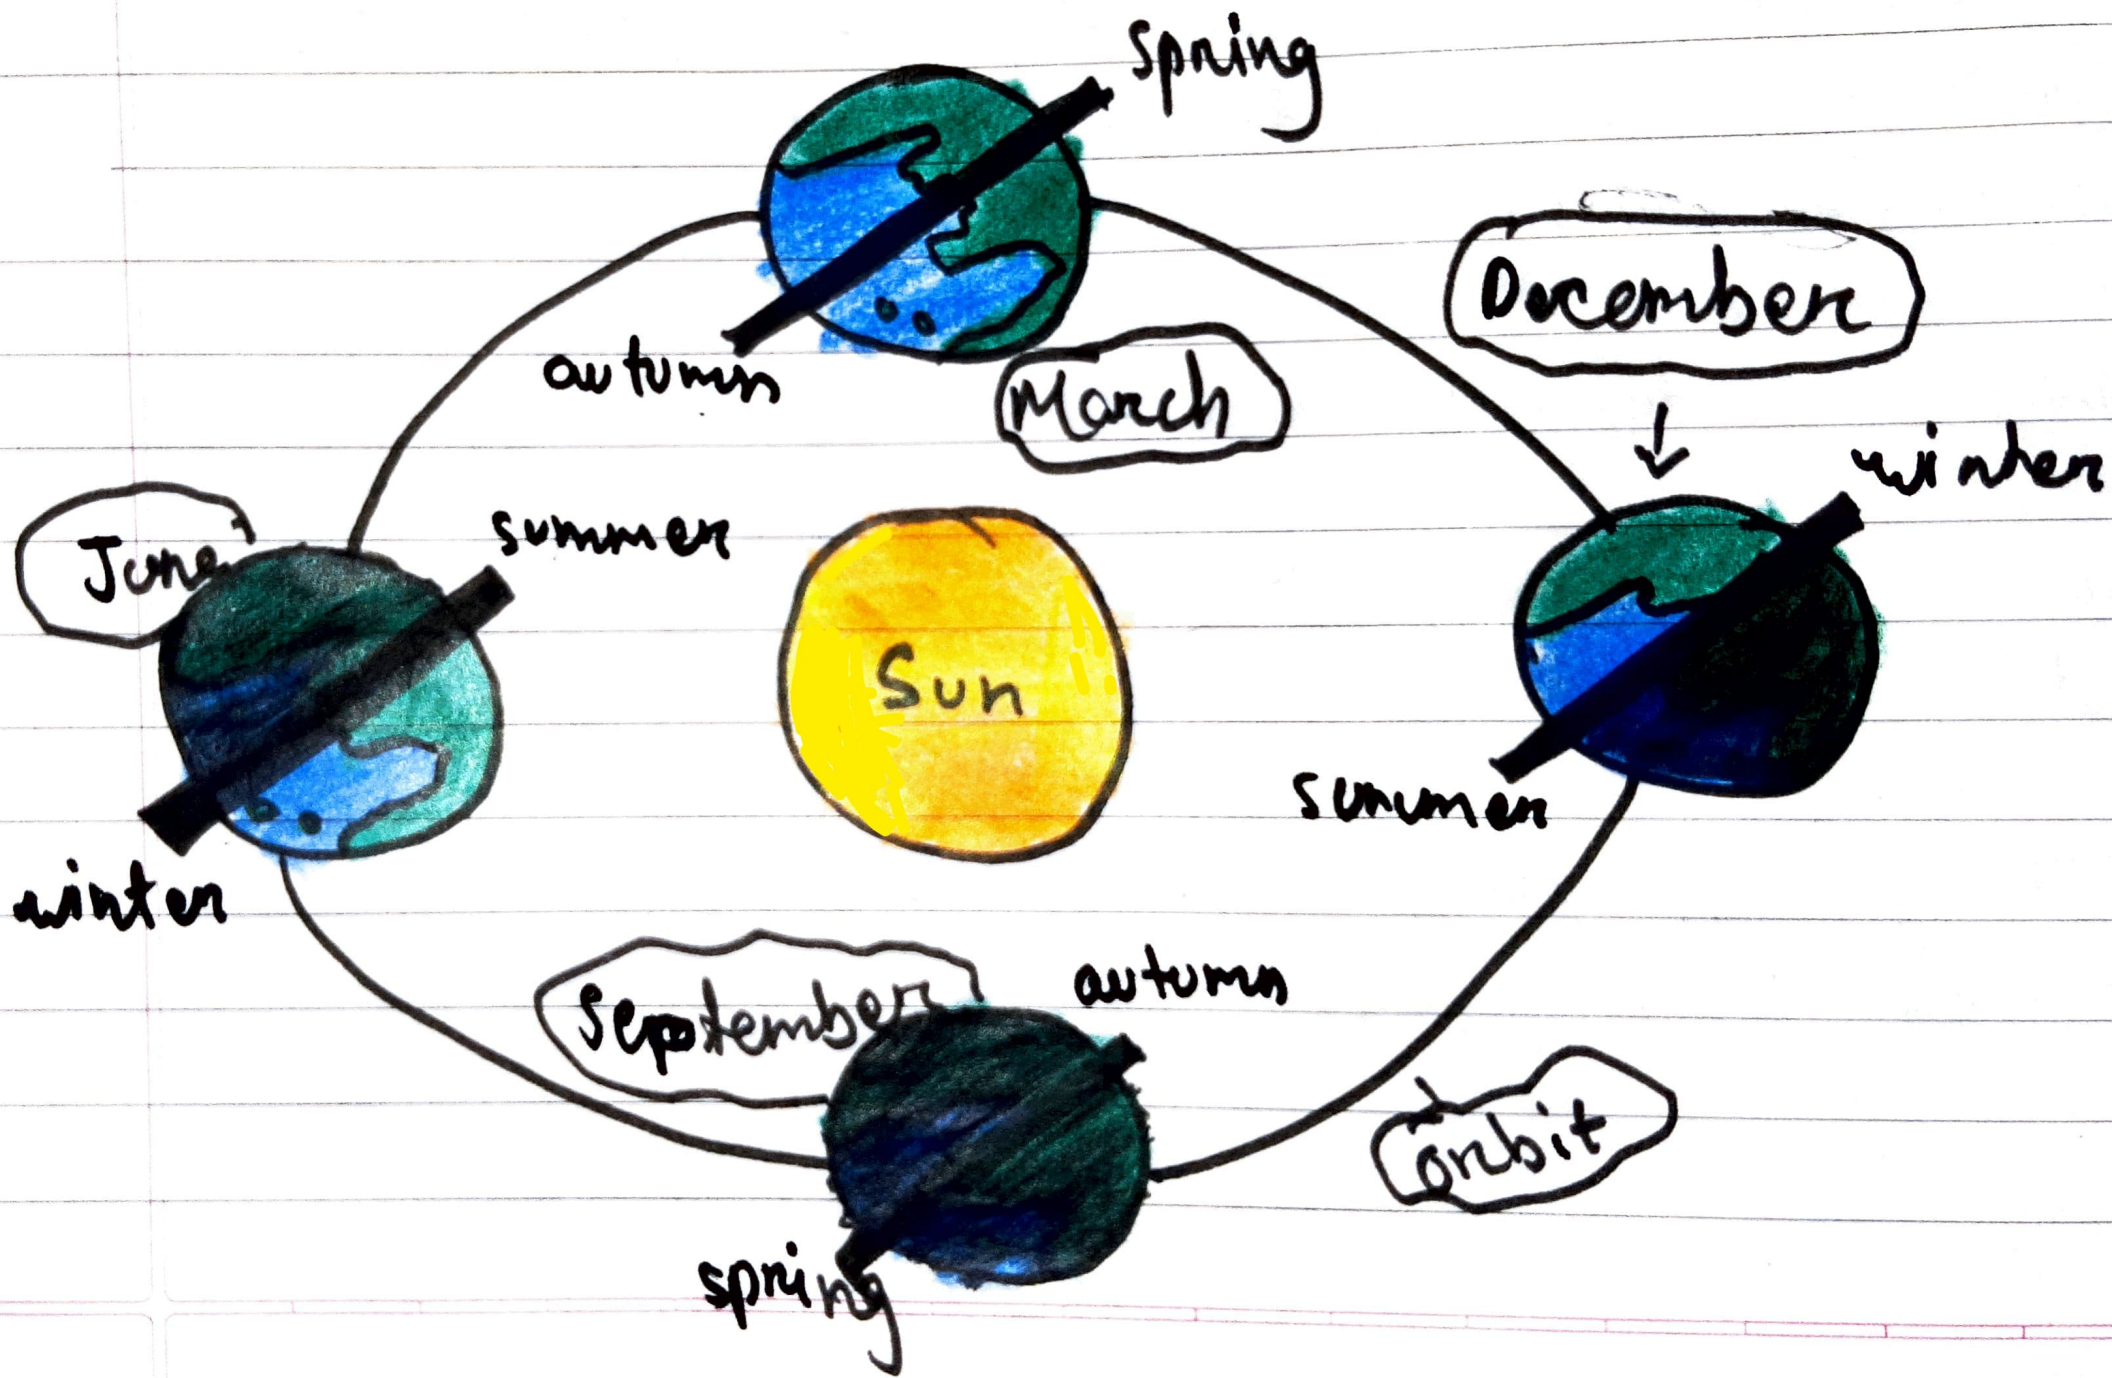 spring
December
autumn
March
winter
June
summer
Sun
summer
winter
September
autumn
orbit
spring